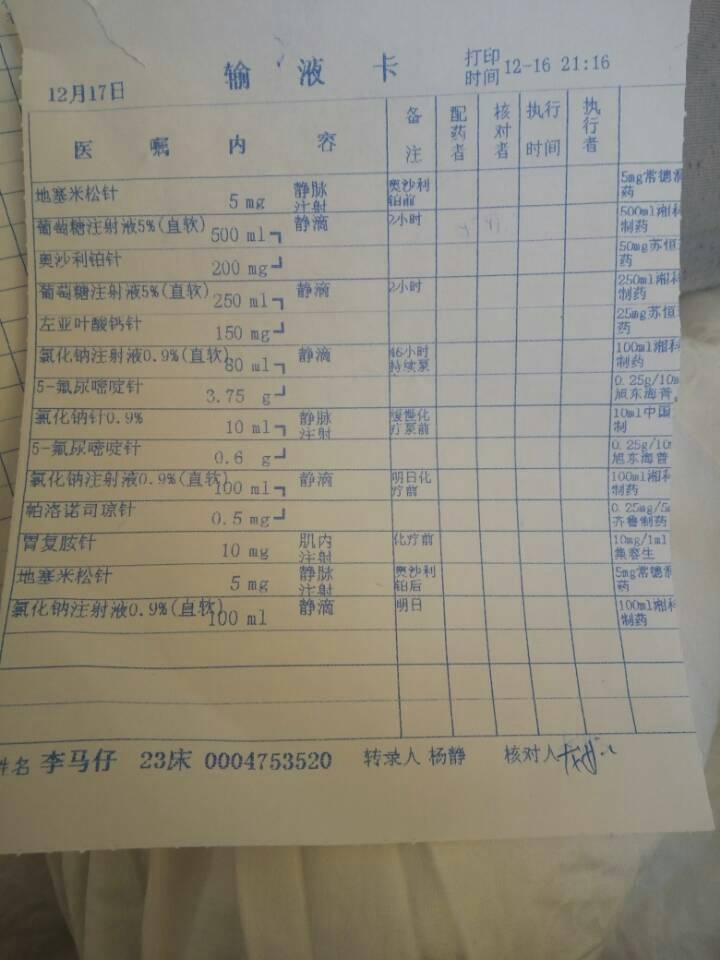 输 液 卡
12月17日
打印时间 12-16 21:16
医 嘱 内 容 备注 配药者 核对者 执行时间 执行者
地塞米松针 5 mg 静脉注射 奥沙利铂前 5mg常德制药
葡萄糖注射液5%(直软) 500 ml 静滴 2小时 500ml湘科制药
奥沙利铂针 200 mg 50mg苏恒药
葡萄糖注射液5%(直软) 250 ml 静滴 2小时 250ml湘科制药
左亚叶酸钙针 150 mg 25mg苏恒药
氯化钠注射液0.9%(直软) 80 ml 静滴 46小时持续泵 100ml湘科制药
5-氟尿嘧啶针 3.75 g 0.25g/10m旭东海普
氯化钠针0.9% 10 ml 静脉注射 缓慢化疗泵前 10ml中国制
5-氟尿嘧啶针 0.6 g 0.25g/10旭东海普
氯化钠注射液0.9%(直软) 100 ml 静滴 明日化疗前 100ml湘科制药
帕洛诺司琼针 0.5 mg 0.25mg/5齐鲁制药
胃复胺针 10 mg 肌内注射 化疗前 10mg/1ml
地塞米松针 5 mg 静脉注射 奥沙利铂后 5mg常德制药
氯化钠注射液0.9%(直软) 100 ml 静滴 明日 100ml湘科制药
姓名 李马仔 23床 0004753520 转录人 杨静 核对人